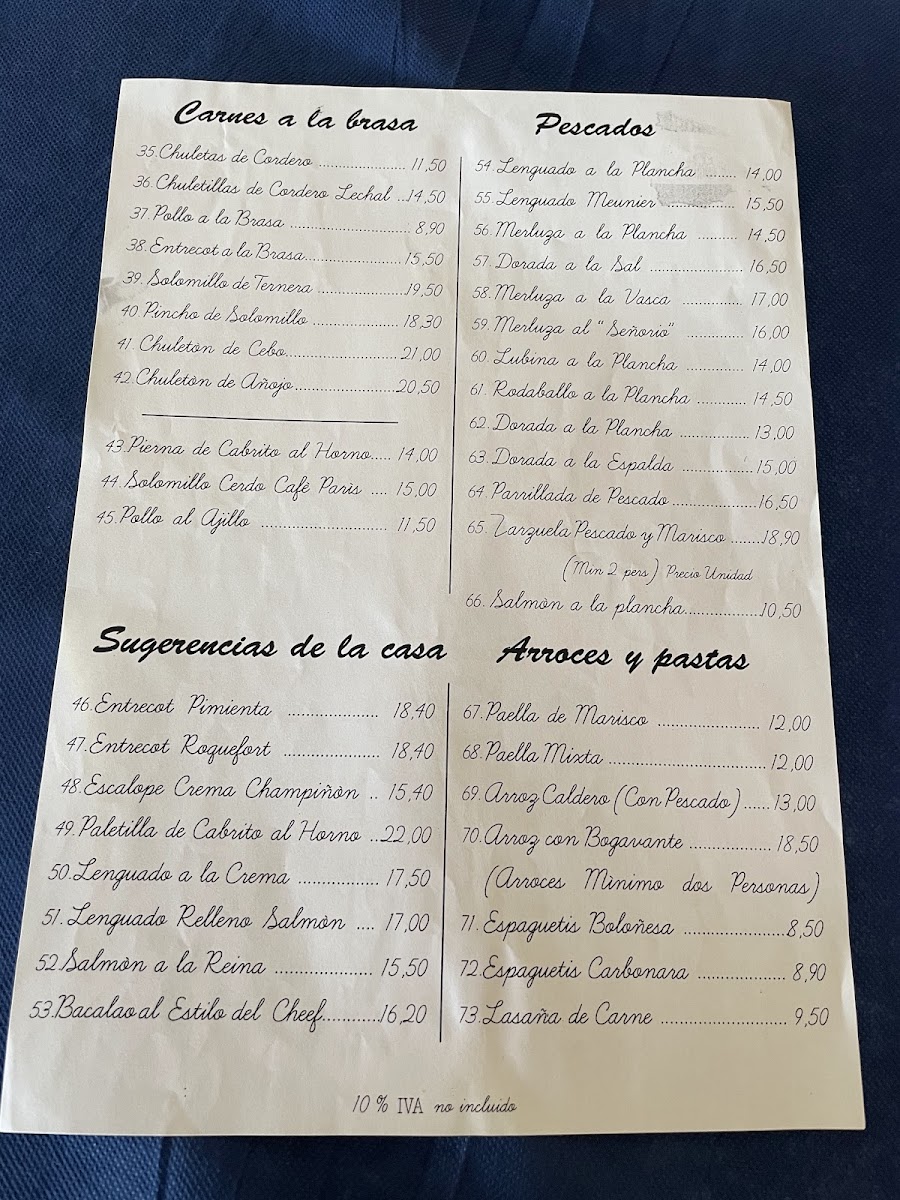 Carnes a la brasa
35.Chuletas de Cordero ........................ 11,50
36.Chuletillas de Cordero Lechal ..14,50
37.Pollo a la Brasa ................................ 8,90
38.Entrecot a la Brasa..........................15,50
39.Solomillo de Ternera ......................19,50
40 Pincho de Solomillo ......................18,30
41. Chuletòn de Cebo............................21,00
42.Chuletòn de Añojo.........................20,50
43.Pierna de Cabrito al Horno..... 14,00
44.Solomillo Cerdo Cafè Parìs .... 15,00
45.Pollo al Ajillo ............................... 11,50
Pescados
54.Lenguado a la Plancha ........ 14,00
55.Lenguado Meunier .................. 15,50
56.Merluza a la Plancha .......... 14,50
57.Dorada a la Sal ....................... 16,50
58.Merluza a la Vasca ............... 17,00
59.Merluza al "Señorio" ................ 16,00
60.Lubina a la Plancha ............. 14,00
61.Rodaballo a la Plancha ............ 14,50
62.Dorada a la Plancha ................. 13,00
63.Dorada a la Espalda ..................15,00
64.Parrillada de Pescado .....................16,50
65.Zarzuela Pescado y Marisco .......18,90
(Min 2 pers) Precio Unidad
66.Salmòn a la plancha..................10,50
Sugerencias de la casa
46.Entrecot Pimienta ..................... 18,40
47.Entrecot Roquefort ...................... 18,40
48.Escalope Crema Champiñòn .. 15,40
49.Paletilla de Cabrito al Horno ..22,00
50.Lenguado a la Crema .................. 17,50
51.Lenguado Relleno Salmòn .... 17,00
52.Salmòn a la Reina ...................... 15,50
53.Bacalao al Estilo del Cheef............16,20
Arroces y pastas
67.Paella de Marisco ........................ 12,00
68.Paella Mixta ....................................12,00
69.Arroz Caldero (Con Pescado)......13,00
70.Arroz con Bogavante .................. 18,50
(Arroces Mìnimo dos Personas)
71.Espaguetis Boloñesa .........................8,50
72.Espaguetis Carbonara .................... 8,90
73.Lasaña de Carne ............................ 9,50
10 % IVA no incluido